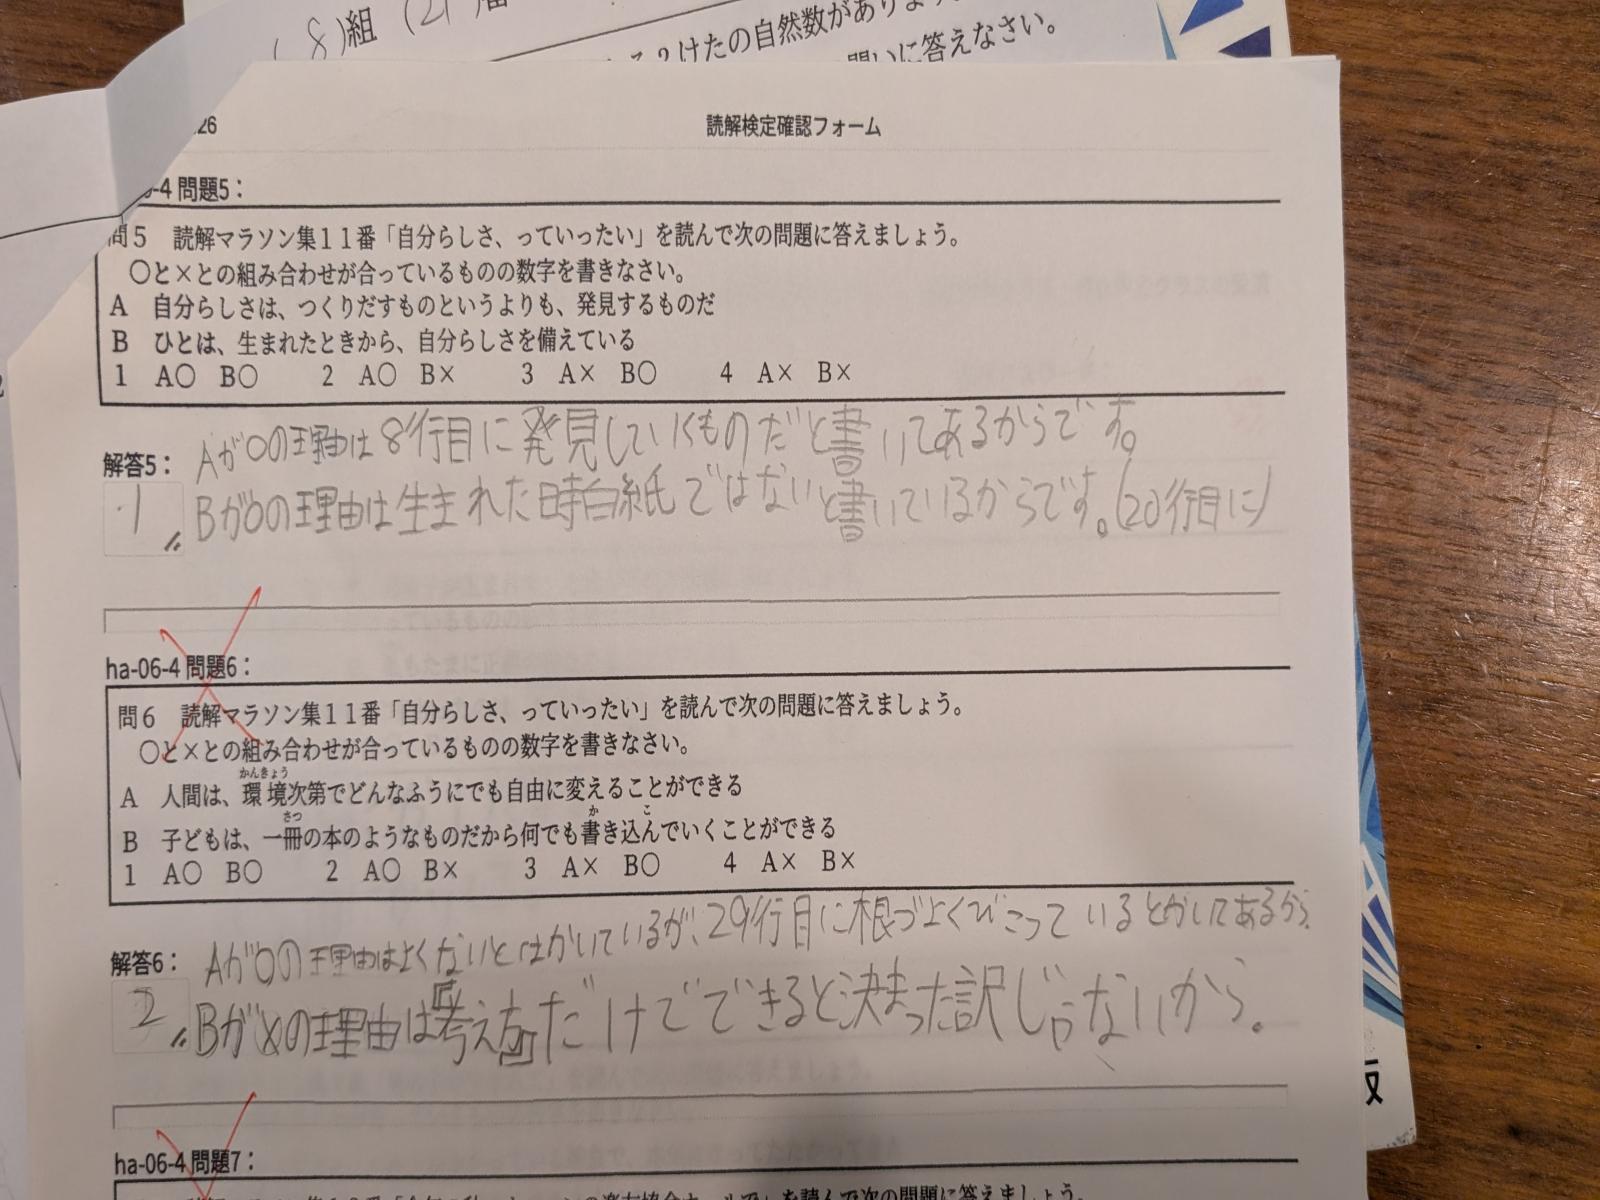 (8)組 (21)番
2けたの自然数があります
問いに答えなさい。
26 読解検定確認フォーム
-4 問題5：
問５　読解マラソン集１１番「自分らしさ、っていったい」を読んで次の問題に答えましょう。
○と×との組み合わせが合っているものの数字を書きなさい。
A　自分らしさは、つくりだすものというよりも、発見するものだ
B　ひとは、生まれたときから、自分らしさを備えている
1　A○　B○　　2　A○　B×　　3　A×　B○　　4　A×　B×
Aが○の理由は8行目に発見していくものだと書いてあるからです。
解答5：
1
Bが○の理由は生まれた時白紙ではないと書いているからです。(20行目に)
ha-06-4 問題6：
問６　読解マラソン集１１番「自分らしさ、っていったい」を読んで次の問題に答えましょう。
○と×との組み合わせが合っているものの数字を書きなさい。
かんきょう
A　人間は、環境次第でどんなふうにでも自由に変えることができる
さつ　か　こ
B　子どもは、一冊の本のようなものだから何でも書き込んでいくことができる
1　A○　B○　　2　A○　B×　　3　A×　B○　　4　A×　B×
Aが○の理由はよくないとはかいているが、29行目に根づよくびこっているとかいてあるから、
解答6：
2
Bが×の理由は『考え方』だけでできると決まった訳じゃないから。
ha-06-4 問題7：
を読んで次の問題に答えましょう。